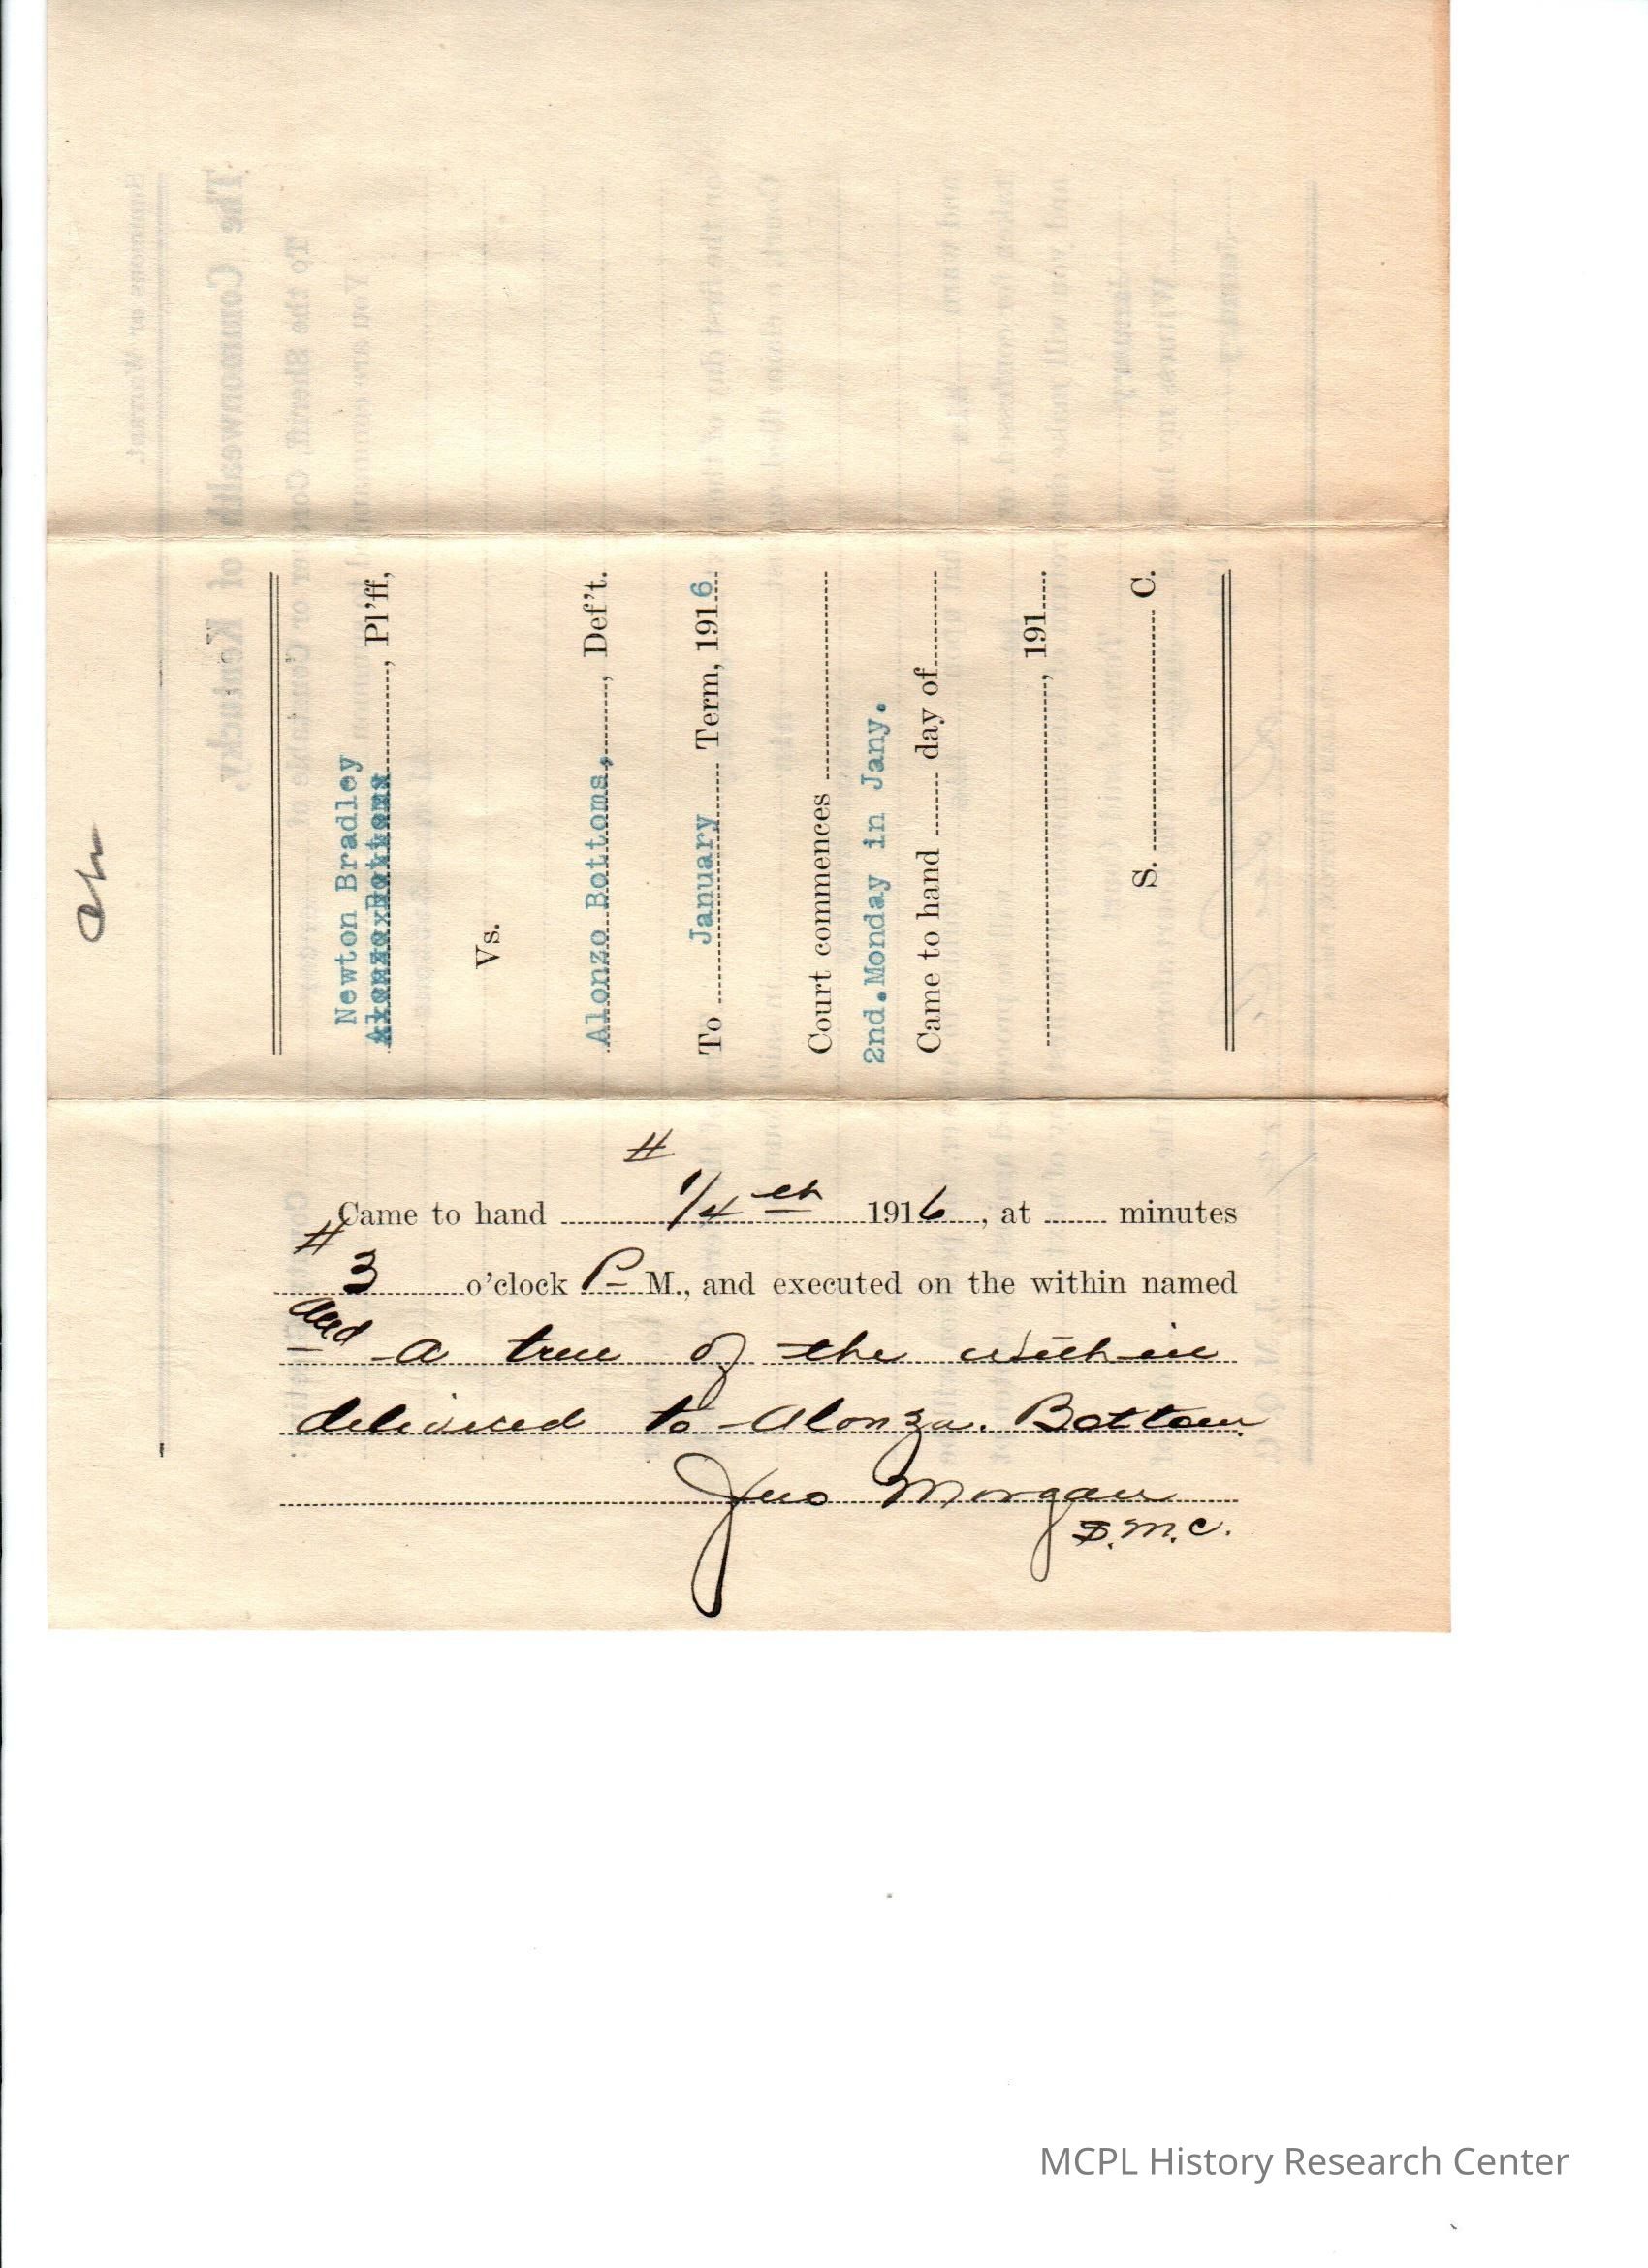 Newton Bradley
Alonzo Bottoms, Pl'ff,
Vs.
Alonzo Bottoms, Def't.
To January Term, 1916
Court commences
2nd. Monday in Jany.
Came to hand day of
, 191
S. C.
#
Came to hand 1/4 th 1916, at minutes
#
3 o'clock P M., and executed on the within named
and a true of the within
delivered to Alonza. Bottom
Jno Morgan
S.M.C.
MCPL History Research Center